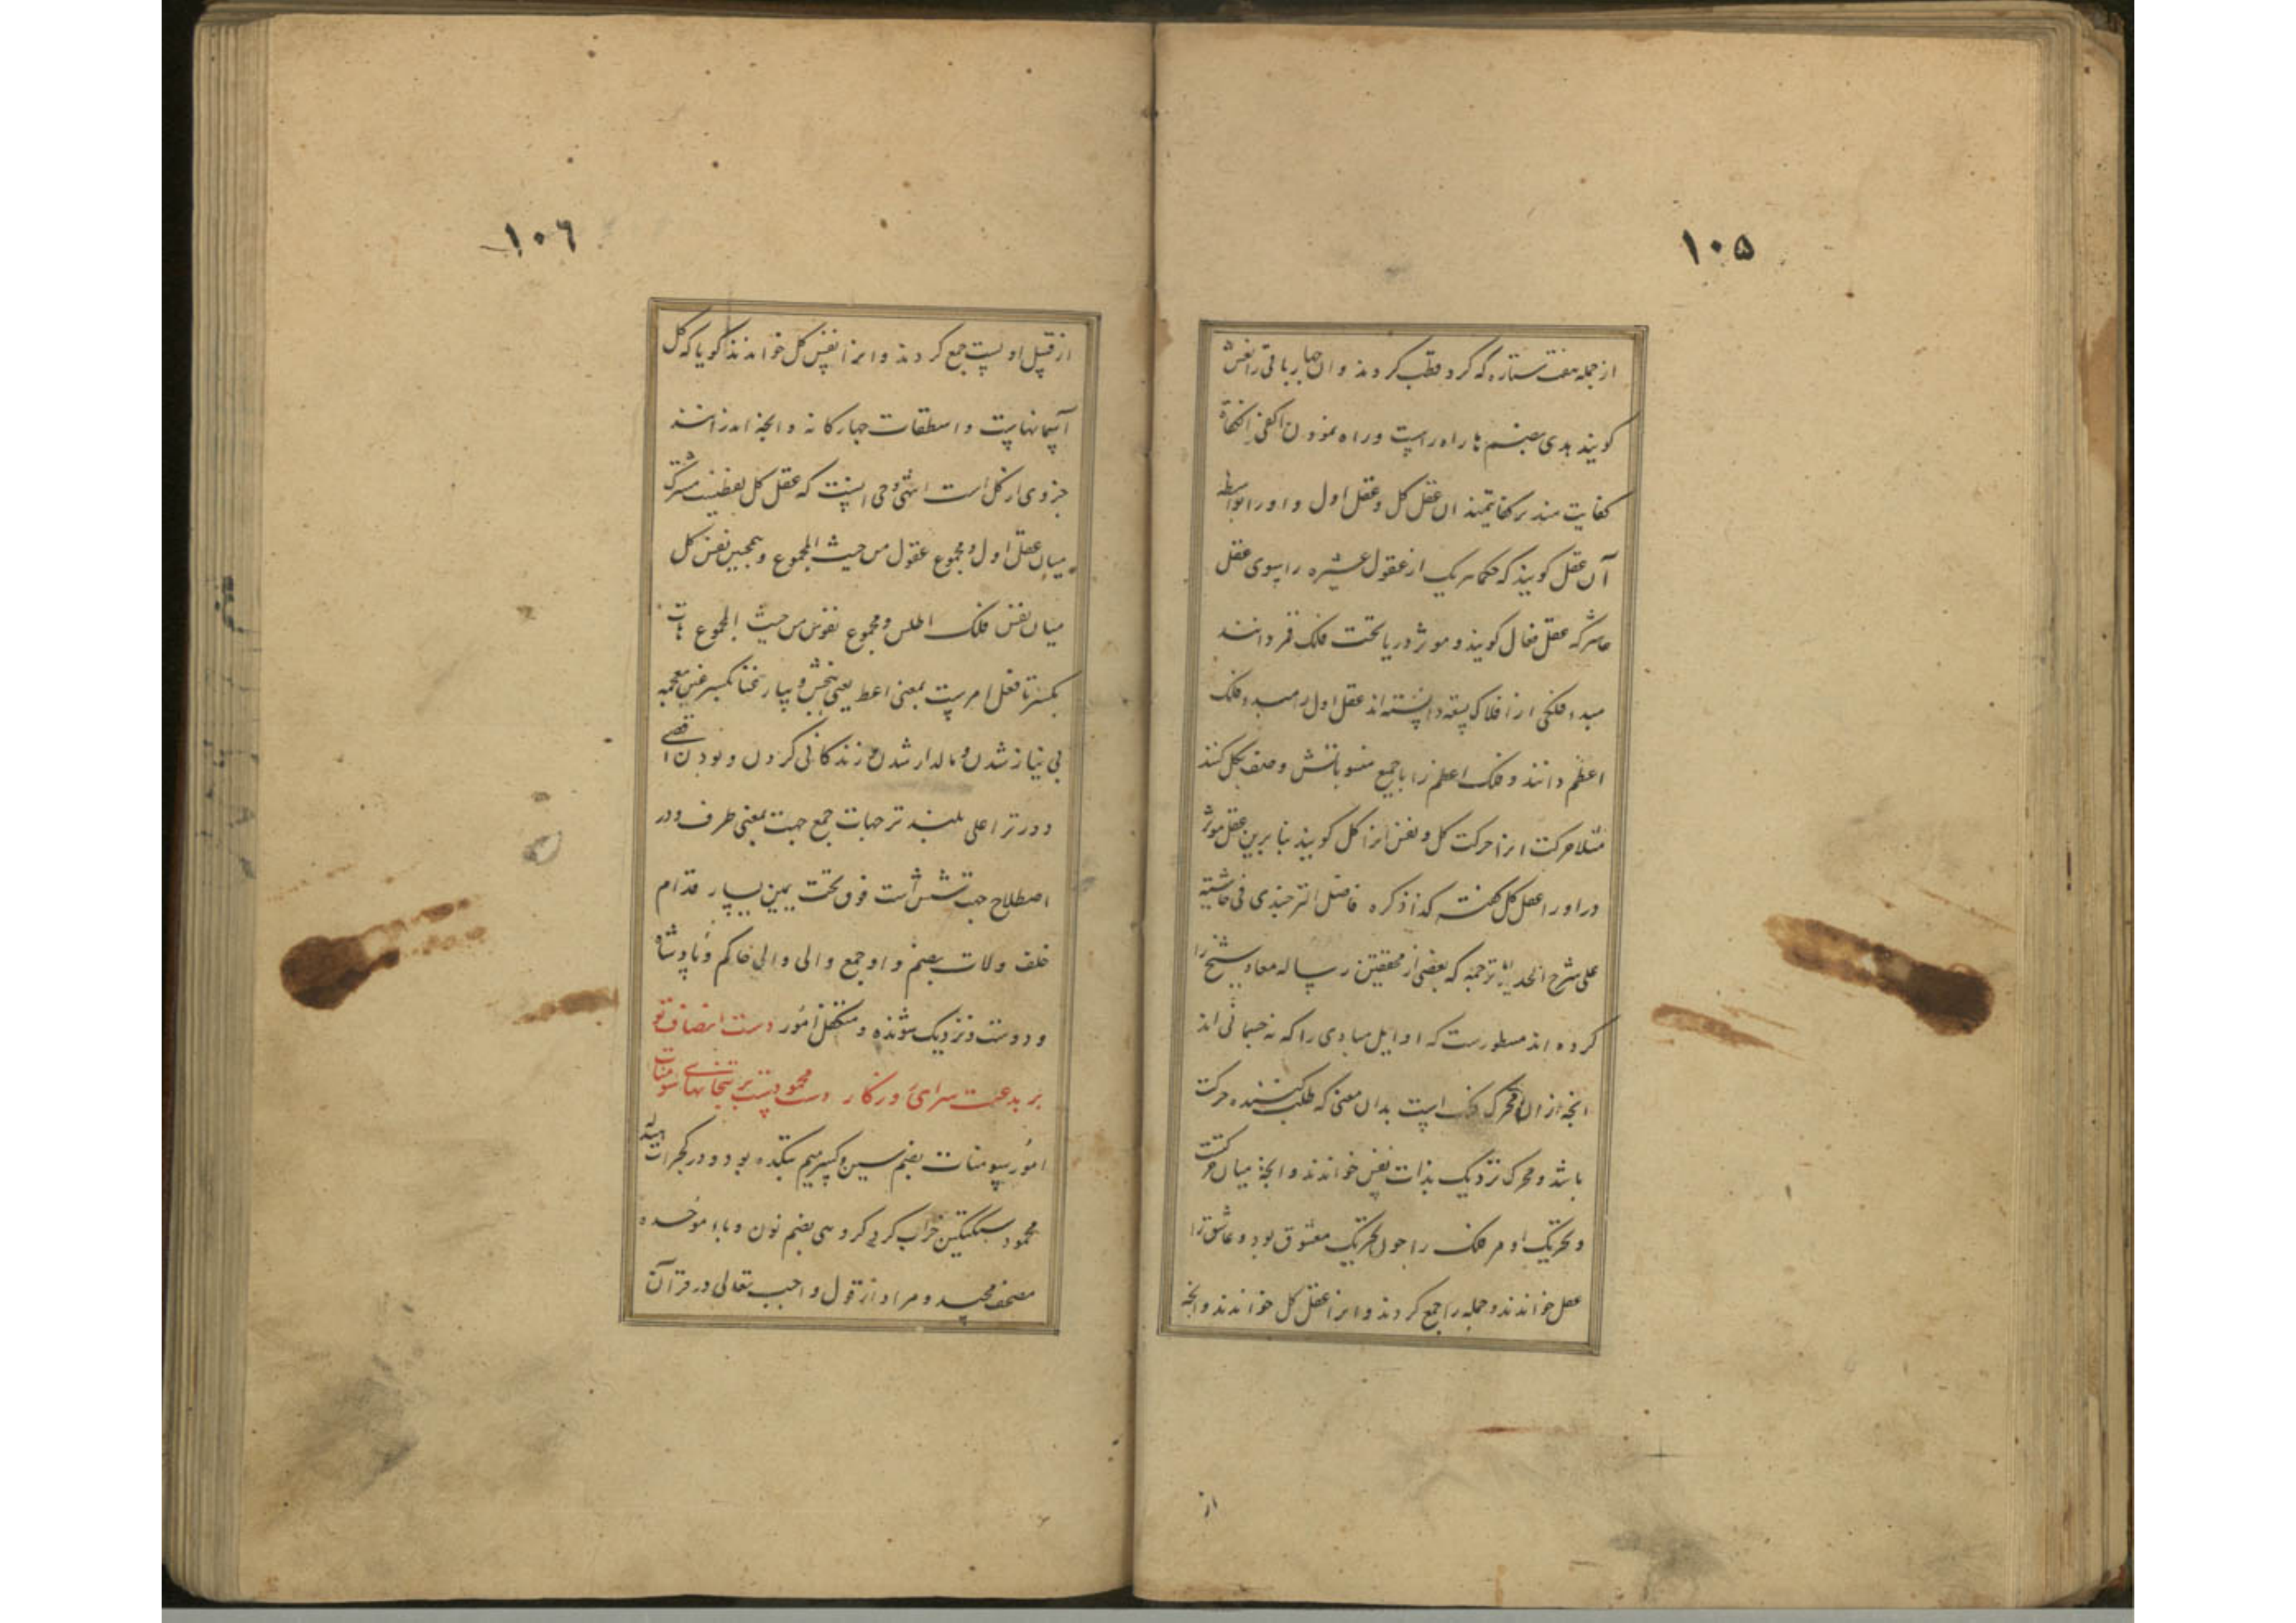 ۱۰۵
از جمله هفت ستاره که گرد قطب گردند و ان چهار باقی را نعش
کویند هدی بضم ها راه راست و راه نمودن اکفی الکفاة
کفایت مند ترکفایتمندان عقل کل و عقل اول و او را بواسطه
آن عقل کویند که حکما هریک از عقول عشره را بسوی عقل
عاشر که عقل فعال کویند و موثر در ما تحت فلک قمر دانند
مبدء فلکی از افلاک تسعه دانسته اند عقل اول را مبدء فلک
اعظم دانند و فلک اعظم را با جمیع منسوباتش وصف بکل کنند
مثلا حرکت انرا حرکت کل و نفس انرا کل کویند بنا برین عقل موثر
در او را عقل کل کفته کذا ذکره فاضل الترخندی فی حاشیته
علی شرح الهدایه ترجمه که بعضی از محققین رساله معاد شیخ را
کرده اند مسطورست که اوایل مبادی را که نه جسمانی اند
انچه از ان محرک فلک است بدان معنی که طلب کننده حرکت
باشد و محرک نزدیک بذات نفس خواندند و انچه میان حرکت
و تحریک او مر فلک را چون تحریک معشوق بود و عاشق را
عقل خواندند و جمله را جمع کردند و انرا عقل کل خواندند و انچه
از
۱۰۶
از قبیل اوست جمع کردند و انرا نفس کل خواندند کویا که کل
آسمانهاست و اسطقسات چهارکانه و انچه اندرانند
جزوی از کل است انتهی و حق اینست که عقل کل لفظیست مشترک
میان عقل اول و مجموع عقول من حیث المجموع و همچنین نفس کل
میان نفس فلک اطلس و مجموع نفوس من حیث المجموع هات
بکسر تا فعل امرست بمعنی اعط یعنی ببخش و بیار غنا بکسر غین معجمه
بی نیاز شدن و مالدار شدن و زندکانی کردن و بودن اقصی
دورتر اعلی بلندتر جهات جمع جهت بمعنی طرف و در
اصطلاح جهت شش است فوق تحت یمین یسار قدام
خلف ولات بضم واو جمع والی والی حاکم و پادشاه
و دوست و نزدیک شونده و متکفل امور دست انصاف تو
بر بدعت سرای روزکار دست محمودست بر بتخانهای سومنات
امور سومنات بضم سین و کسر میم بتکده بود در کجرات
محمود سبکتکین خراب کرد کروهی بضم نون و باء موحده
مصحف مجید و مراد از قول واجب تعالی در قرآن